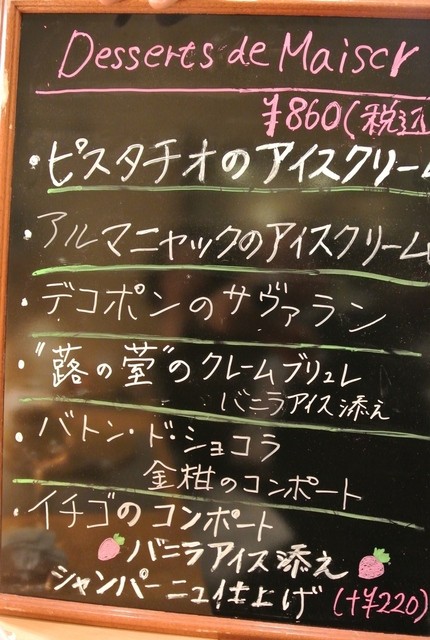 Desserts de Maison
¥860(税込
・ピスタチオのアイスクリーム
・アルマニャックのアイスクリーム
・デコポンのサヴァラン
・"蕗の薹"のクレームブリュレ
バニラアイス添え
・バトン・ド・ショコラ
金柑のコンポート
・イチゴのコンポート
バニラアイス添え
シャンパーニュ仕上げ (+¥220)